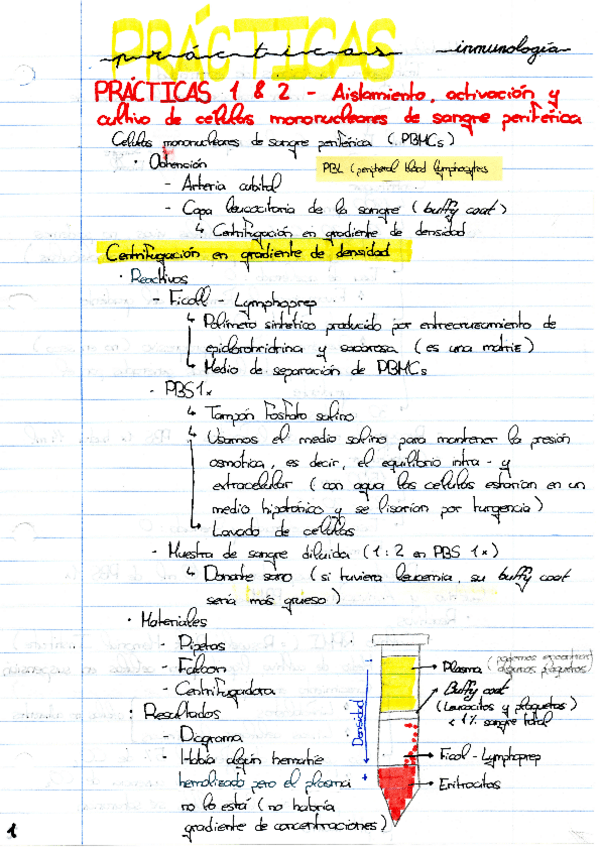 PRÁCTICAS
prácticas inmunología
PRÁCTICAS 1 & 2 - Aislamiento, activación y
cultivo de células mononucleares de sangre periférica
Células mononucleares de sangre periférica (PBMCs)
· Obtención
PBL (peripheral blood lymphocytes
- Arteria cubital
- Capa leucocitaria de la sangre (buffy coat)
↳ Centrifugación en gradiente de densidad
Centrifugación en gradiente de densidad
· Reactivos
- Ficoll - Lymphoprep
↳ Polímero sintético producido por entrecruzamiento de
epiclorohidrina y sacarosa (es una matriz)
↳ Medio de separación de PBMCs
- PBS 1x
↳ Tampón fosfato salino
↳ Usamos el medio salino para mantener la presión
osmótica, es decir, el equilibrio intra - y
extracelular (con agua las células estarían en un
medio hipotónico y se lisarían por turgencia)
↳ Lavado de células
- Muestra de sangre diluida (1:2 en PBS 1x)
↳ Donante sano (si tuviera leucemia, su buffy coat
sería más grueso)
· Materiales
- Pipetas
- Falcon
- Centrifugadora
: Resultados
- Diagrama
- Había algún hematíe
hemolizado pero el plasma
no lo está (no habría
gradiente de concentraciones)
Densidad
→ Plasma (podemos encontrar
algunas plaquetas)
Buffy coat
(Leucocitos y plaquetas)
< 1% sangre total
→ Ficol - Lymphoprep
→ Eritrocitos
1